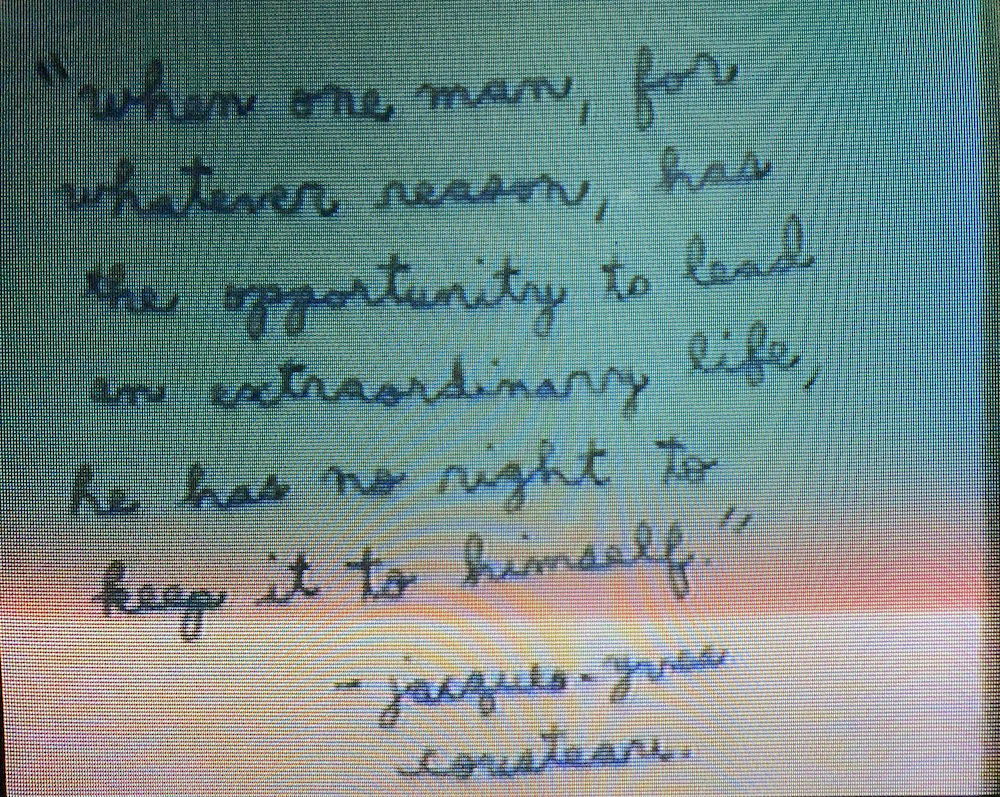 "when one man, for
whatever reason, has
the opportunity to lead
an extraordinary life,
he has no right to
keep it to himself."
- jacques-yves
cousteau.